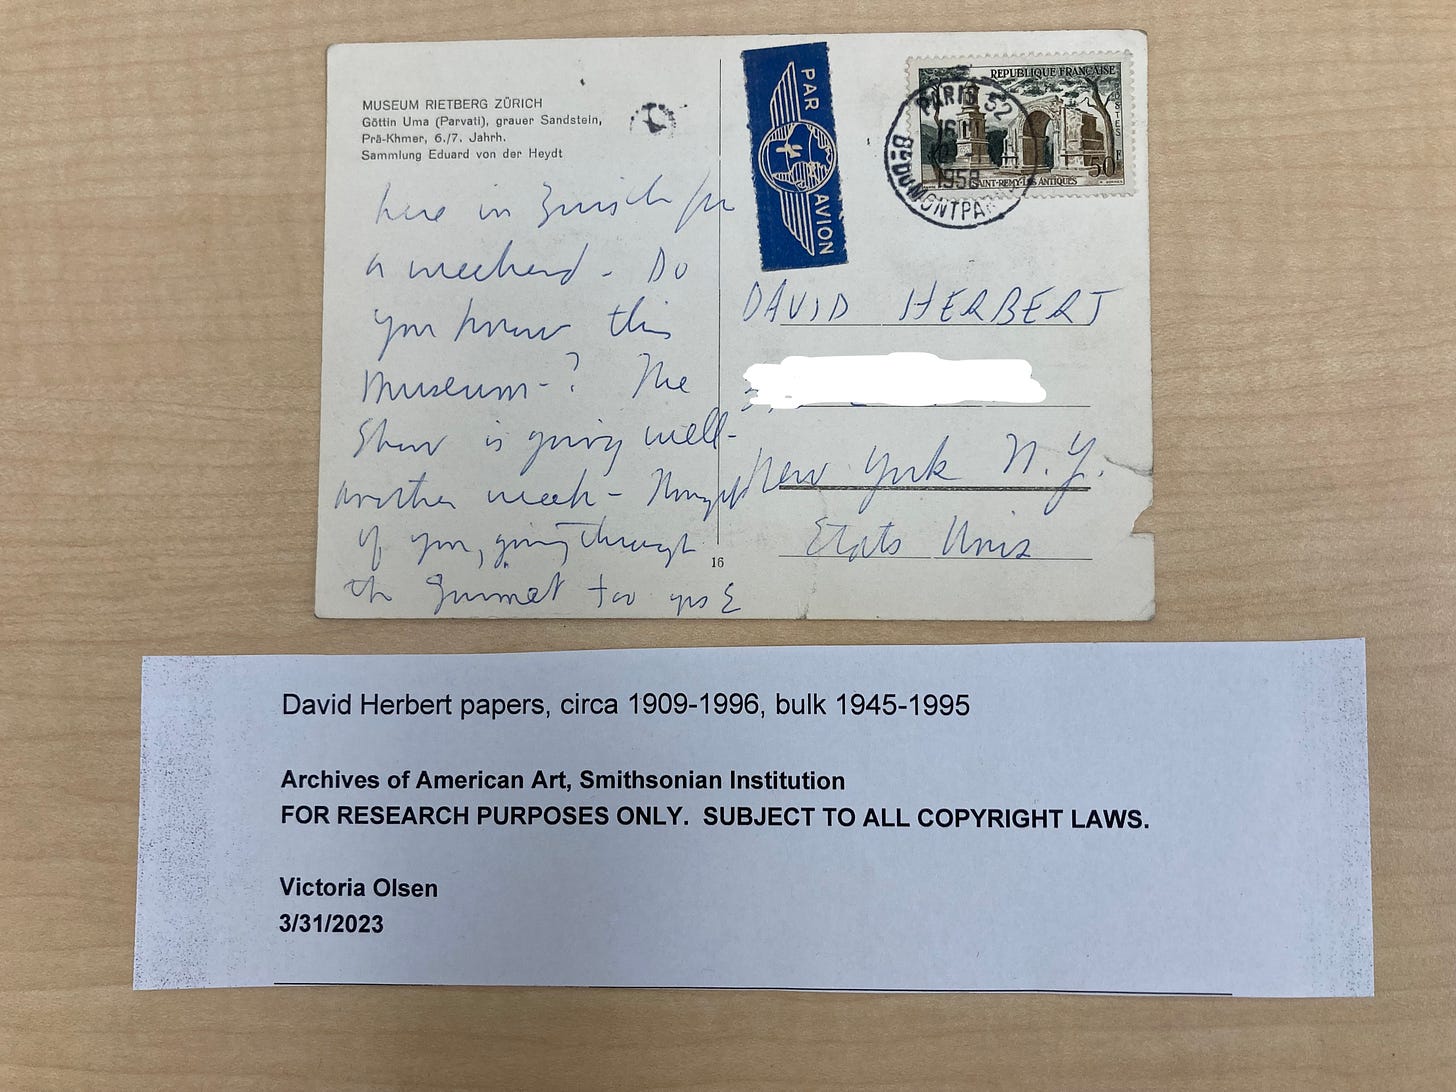 MUSEUM RIETBERG ZÜRICH
Göttin Uma (Parvati), grauer Sandstein,
Prä-Khmer, 6./7. Jahrh.
Sammlung Eduard von der Heydt
here in Zurich for
a weekend - Do
you know this
museum - ? The
Show is going well -
another week -
of you, going through
the Guimet too
16
PAR AVION
REPUBLIQUE FRANÇAISE
POSTES
50F
SAINT-REMY-LES ANTIQUES
PARIS 52
1958
BD DU MONTPARNASSE
DAVID HERBERT
New York N.Y.
Etats Unis
David Herbert papers, circa 1909-1996, bulk 1945-1995
Archives of American Art, Smithsonian Institution
FOR RESEARCH PURPOSES ONLY. SUBJECT TO ALL COPYRIGHT LAWS.
Victoria Olsen
3/31/2023